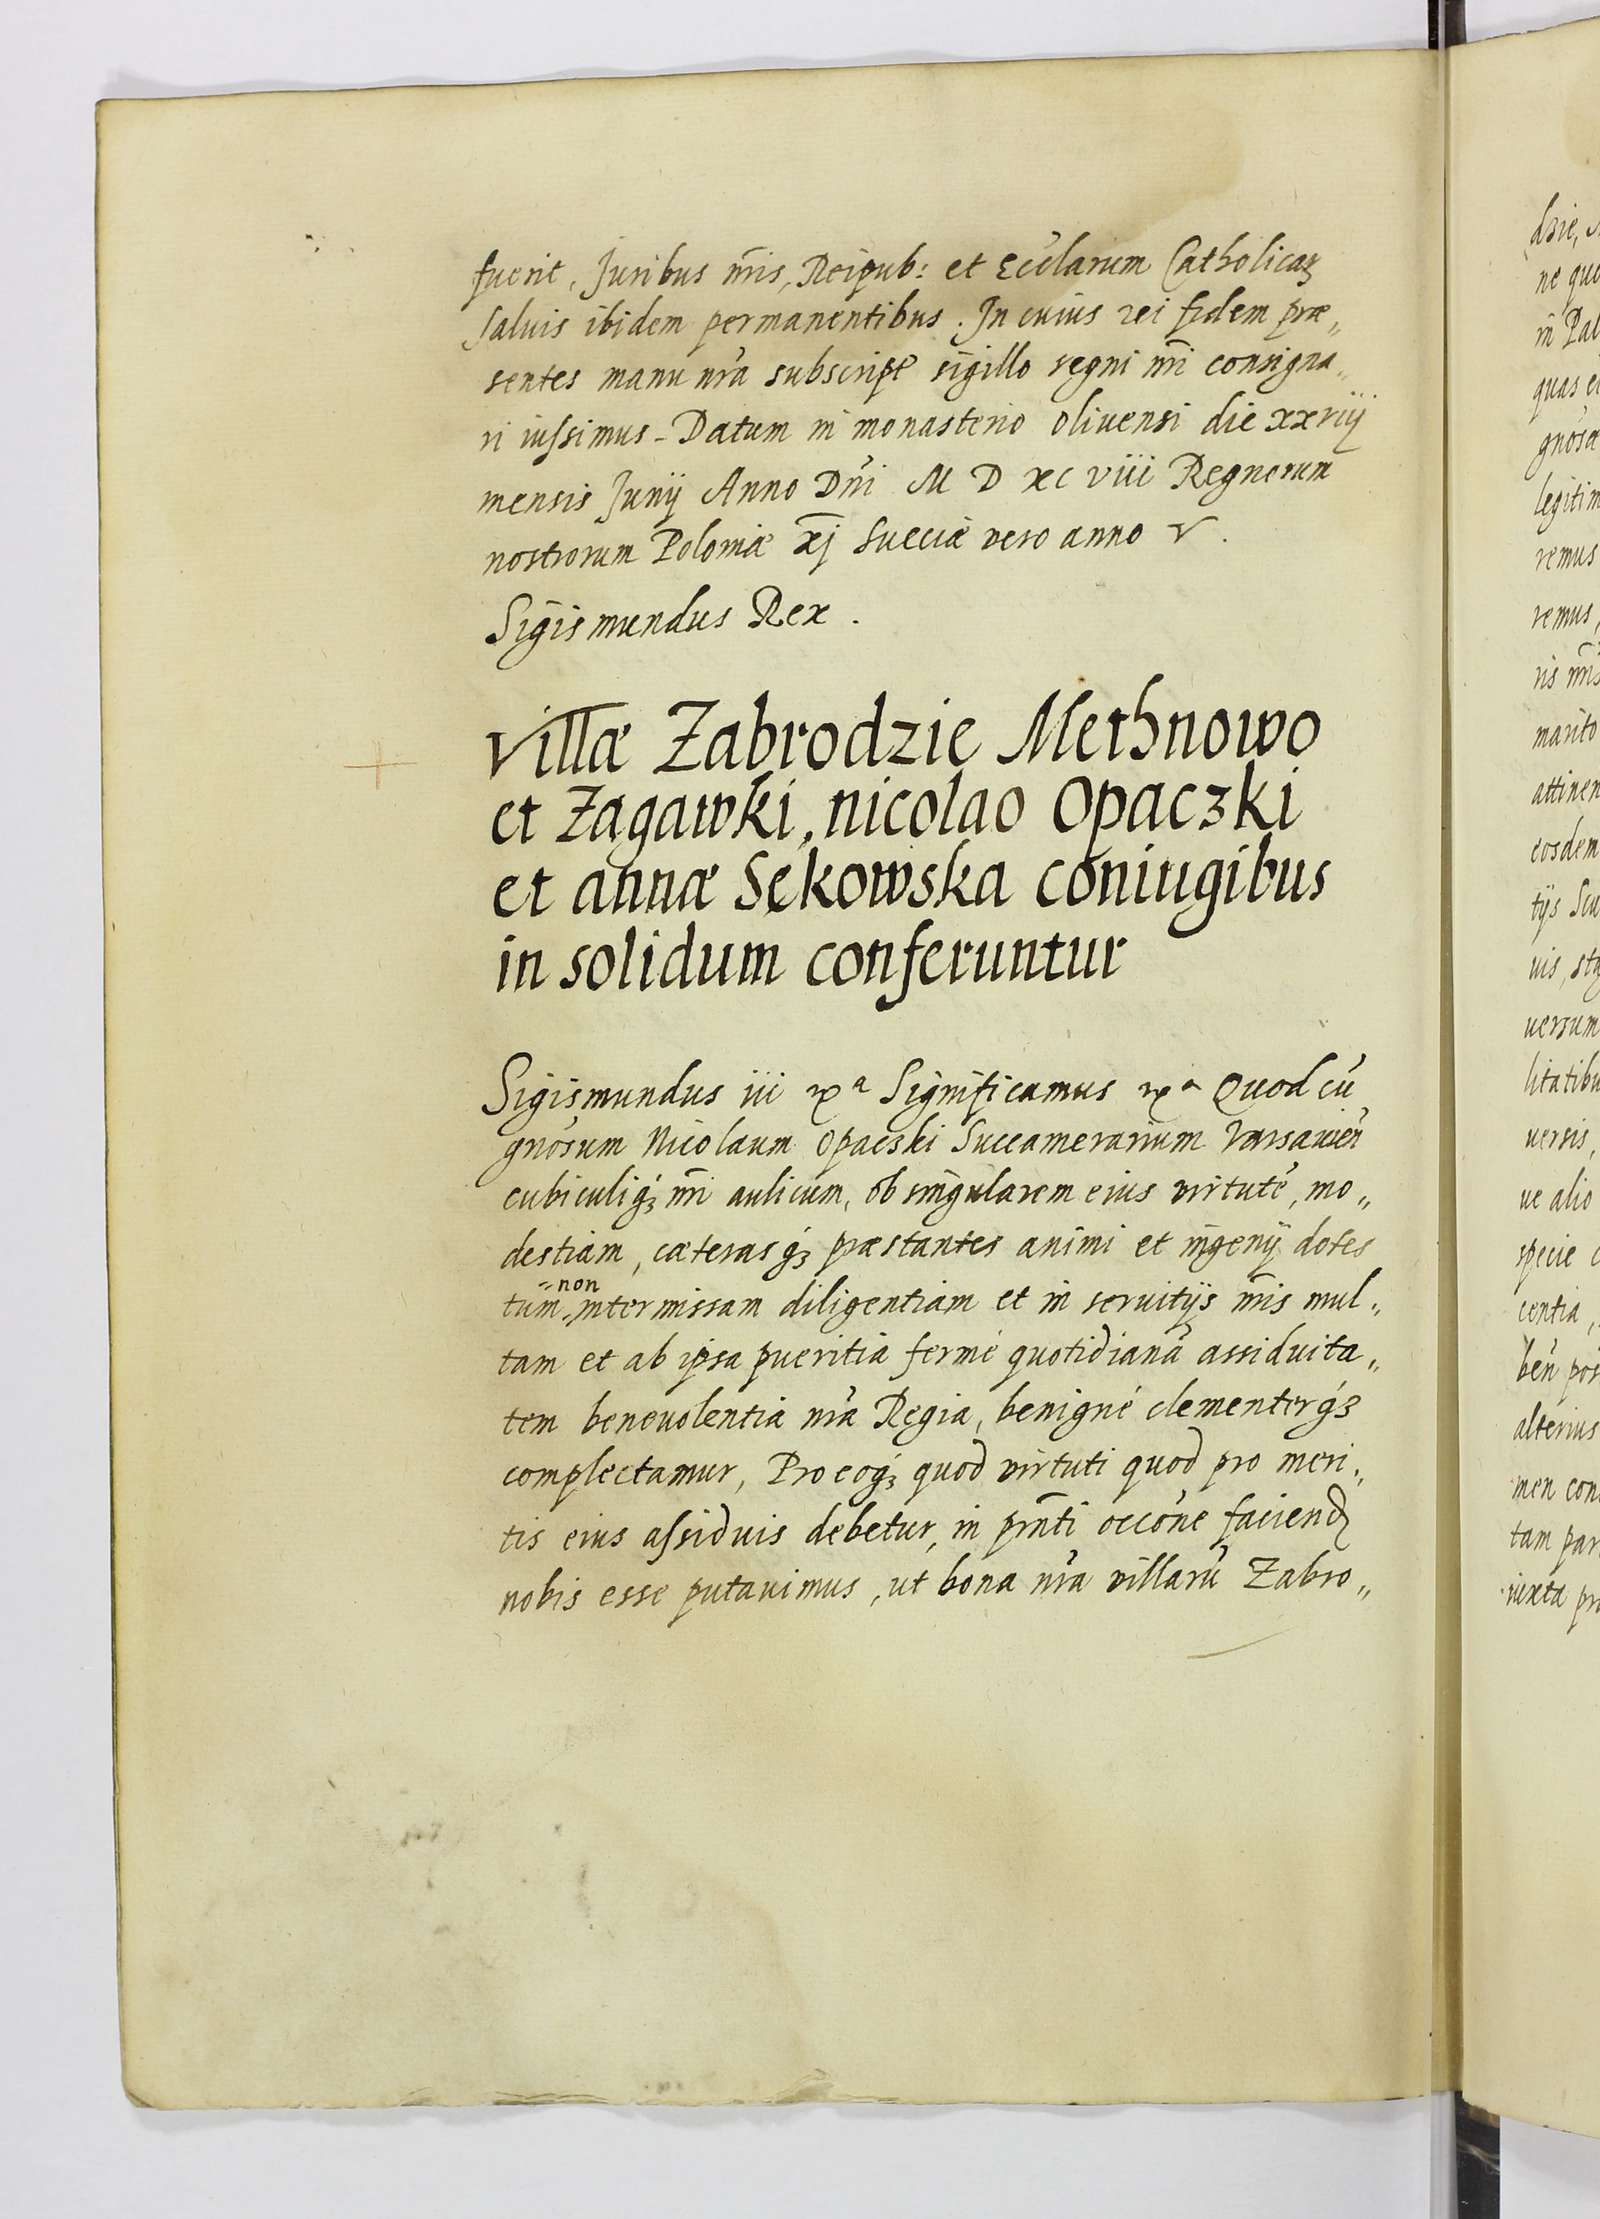 fuerit, Juribus nr̄is, Reipub: et Eccl̄arum Catholicaꝝ
saluis ibidem permanentibus. In cuius rei fidem præ„
sentes manu nr̄a subscript̄ sigillo regni nr̄i consigna„
ri iussimus – Datum in monasterio oliuensi die xxviij
mensis Junij Anno Dn̄i M D xc viii Regnorum
nostrorum Poloniæ xj Sueciæ vero anno v.
Sigismundus Rex.
villæ Zabrodzie Methnowo
et Zagawki, nicolao Opaczki
et annæ Sękowska coniugibus
in solidum conferuntur
Sigismundus iii rxᵃ Significamus rxᵃ Quod cū
gnōsum Nicolaum Opaczki Succamerarium Varsavien̄
cubiculiqꝫ nr̄i aulicum, ob singularem eius virtutē, mo„
destiam, cæterasqꝫ præstantes animi et ingenij dotes
non
tum intermissam diligentiam et in seruitijs nr̄is mul„
tam et ab ipsa pueritia fermé quotidianā assiduita„
tem beneuolentia nr̄a Regia, benigné clementerqꝫ
complectamur, Pro eoqꝫ quod virtuti quod pro meri„
tis eius assiduis debetur, in prn̄ti occōne faciend
nobis esse putauimus, ut bona nr̄a villarū Zabro„
dzie,
ne que
in Pal
quas e
gnōsa
legitim
remus
remus,
ris nr̄is
marito
attinen
eosdem
tijs Scu
uis, sta
uersum
litatibu
uersis,
ue alio
specie c
centia,
ben̄ pos
alterius
men con
tam par
iuxta pro